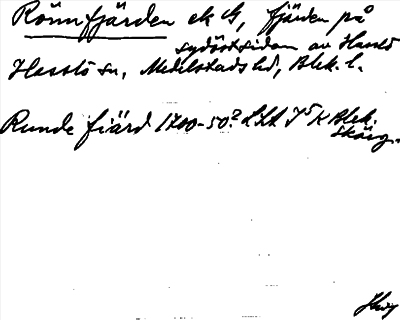 Rönnfjärden ek G, fjärden på
sydöstsidan av Hasslö
Hasslö sn, Medelstads hd, Blek. l.
Runde fiärd 1700-50? LSA J5 K Blek.
skärg.